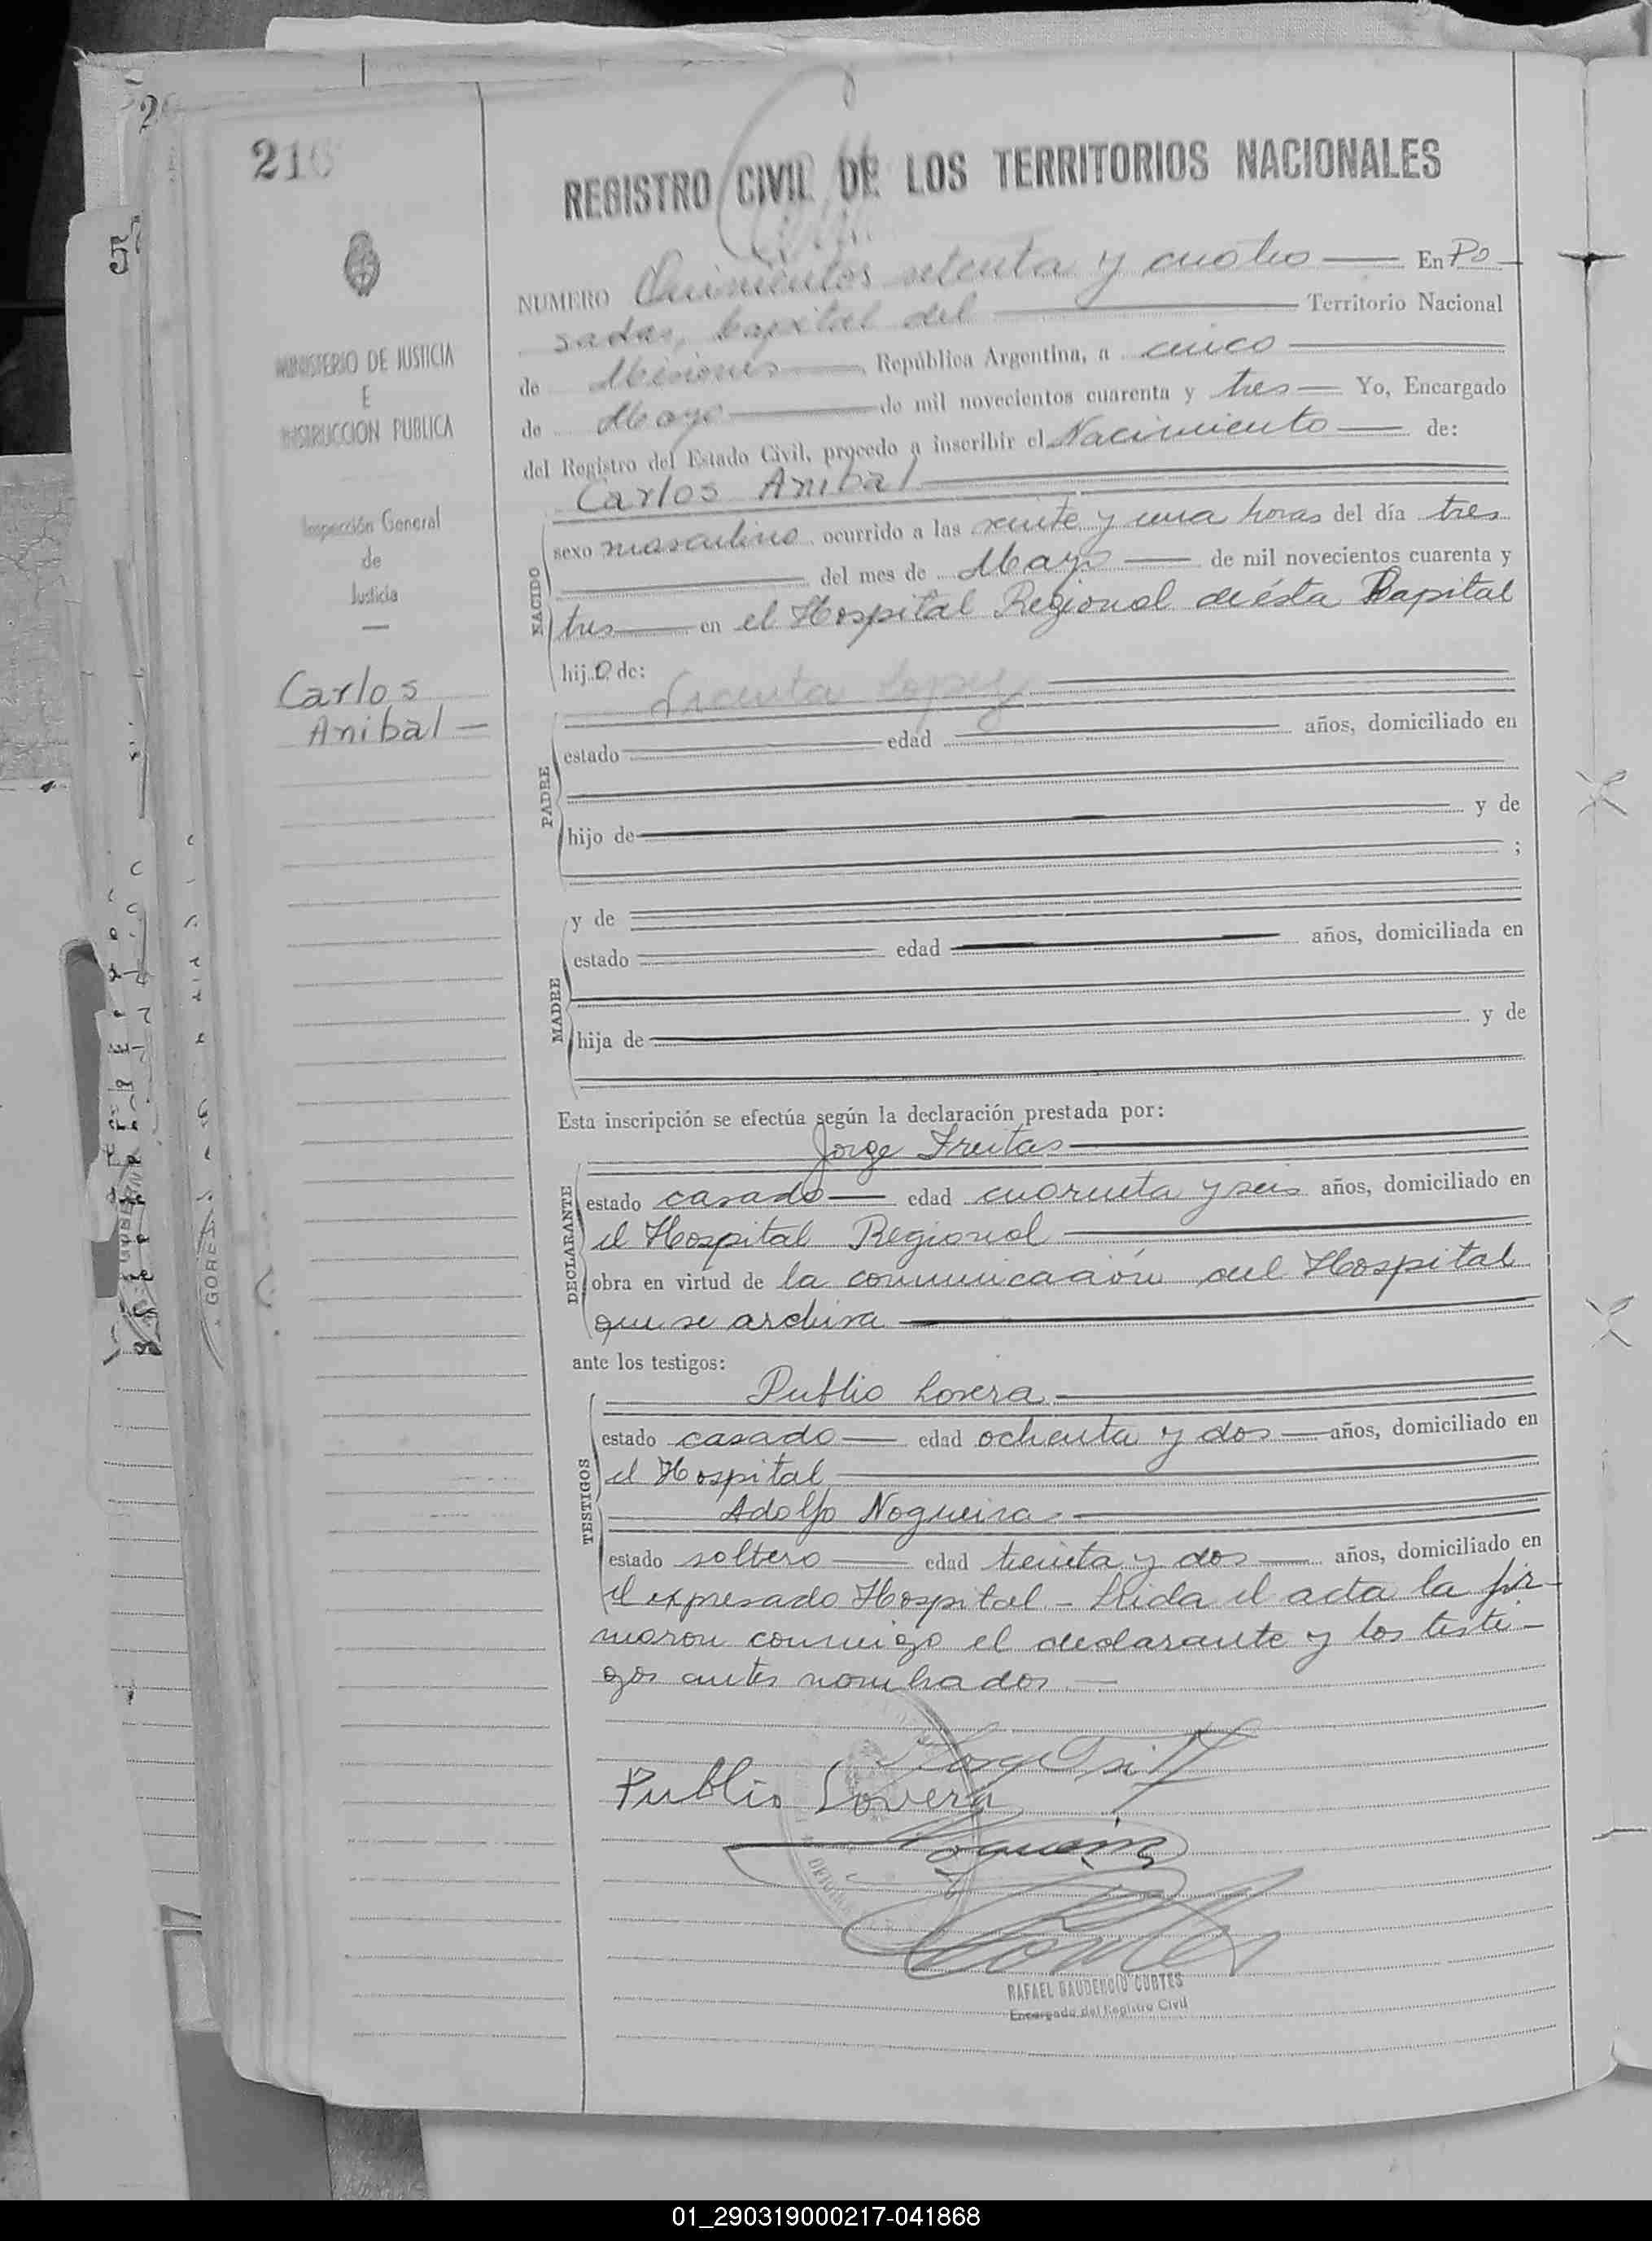 216
REGISTRO CIVIL DE LOS TERRITORIOS NACIONALES
NUMERO Quinientos setenta y cuatro — En Po
sadas, Capital del — Territorio Nacional
de Misiones — República Argentina, a cinco —
de Mayo — de mil novecientos cuarenta y tres — Yo, Encargado
del Registro del Estado Civil, procedo a inscribir el Nacimiento — de:
Carlos Anibal
NACIDO
sexo masculino ocurrido a las veinte y una horas del día tres
— del mes de Mayo — de mil novecientos cuarenta y
tres — en el Hospital Regional de ésta Capital
hijo de:
Lopez
PADRE
estado — edad — años, domiciliado en
hijo de — y de
;
MADRE
y de
estado — edad — años, domiciliada en
hija de — y de
Esta inscripción se efectúa según la declaración prestada por:
Jorge Freitas
DECLARANTE
estado casado — edad cuarenta y seis años, domiciliado en
el Hospital Regional
obra en virtud de la comunicación del Hospital
que se archiva
ante los testigos:
TESTIGOS
Publio Lovera
estado casado — edad ochenta y dos — años, domiciliado en
el Hospital
Adolfo Nogueira
estado soltero — edad treinta y dos — años, domiciliado en
el expresado Hospital - Leida el acta la fir-
maron conmigo el declarante y los testi-
gos antes nombrados —
Publio Lovera
RAFAEL GAUDENCIO CORTES
Encargado del Registro Civil
MINISTERIO DE JUSTICIA
E
INSTRUCCION PUBLICA
Inspección General
de
Justicia
Carlos
Anibal —
01_290319000217-041868